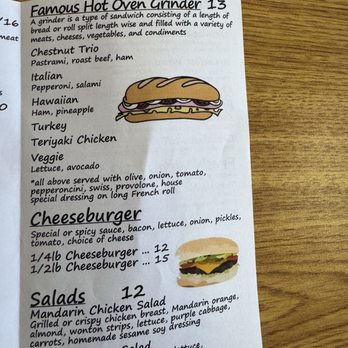 /16
meat
s
0
Famous Hot Oven Grinder 13
A grinder is a type of sandwich consisting of a length of
bread or roll split length wise and filled with a variety of
meats, cheeses, vegetables, and condiments
Chestnut Trio
Pastrami, roast beef, ham
Italian
Pepperoni, salami
Hawaiian
Ham, pineapple
Turkey
Teriyaki Chicken
Veggie
Lettuce, avocado
*all above served with olive, onion, tomato,
pepperoncini, swiss, provolone, house
special dressing on long French roll
Cheeseburger
Special or spicy sauce, bacon, lettuce, onion, pickles,
tomato, choice of cheese
1/4lb Cheeseburger ... 12
1/2lb Cheeseburger ... 15
Salads 12
Mandarin Chicken Salad
Grilled or crispy chicken breast, Mandarin orange,
almond, wonton strips, lettuce, purple cabbage,
carrots, homemade sesame soy dressing
Salad
lettuce,